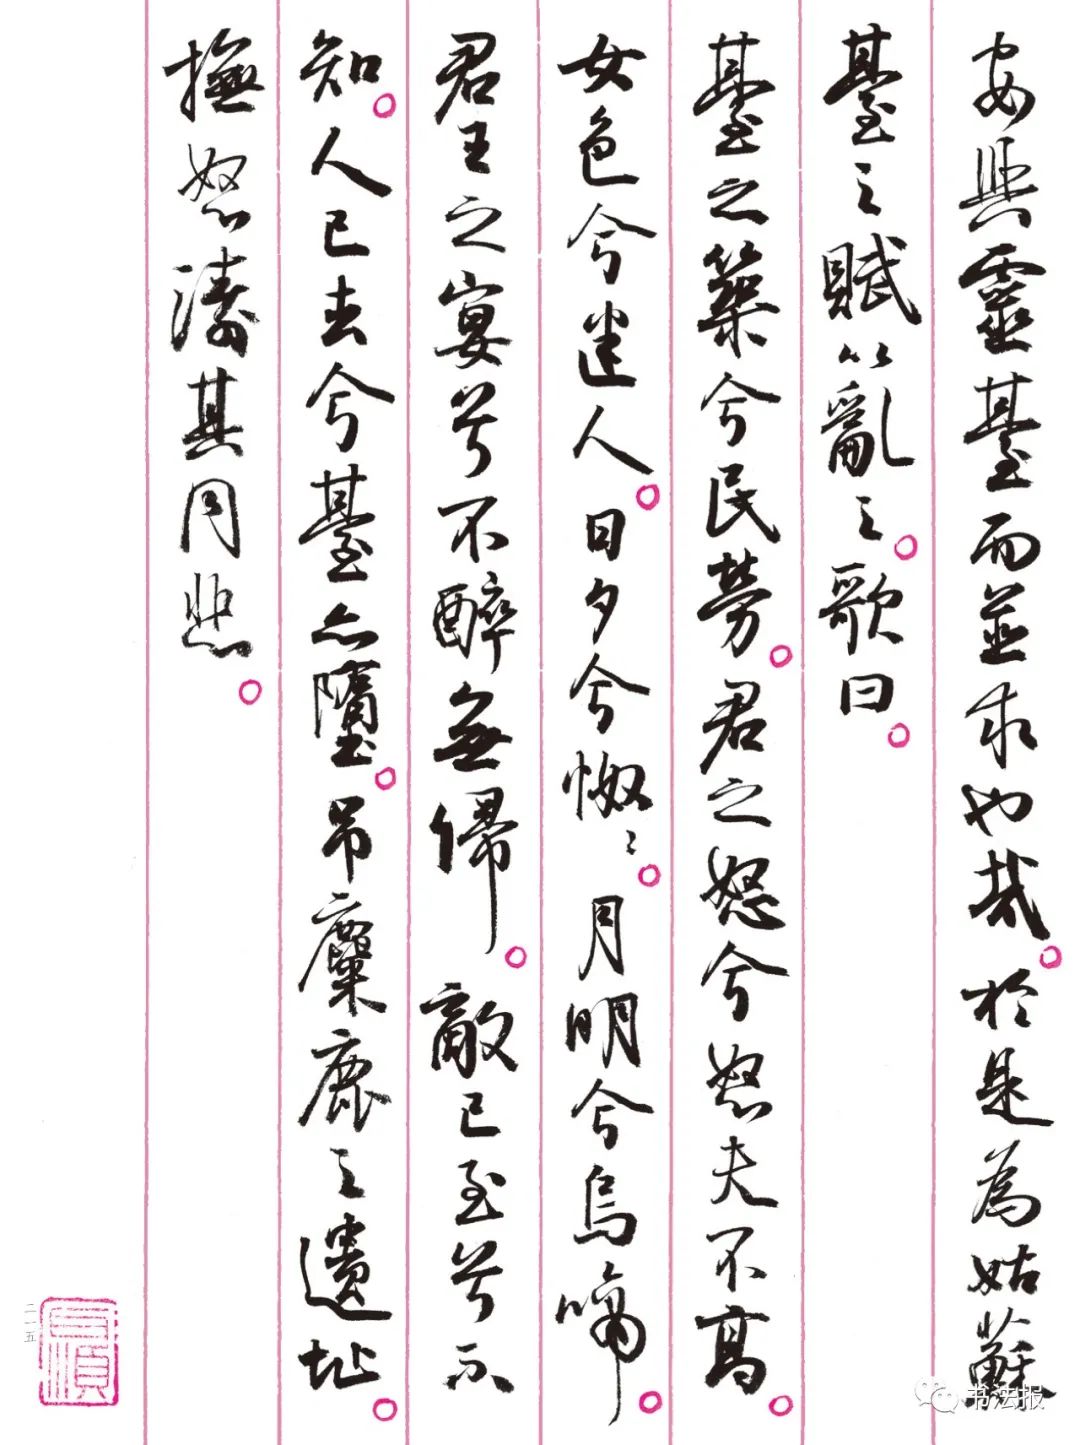 安與靈臺而並求也哉。於是為姑蘇
臺之賦以亂之。歌曰。
臺之築兮民勞。君之怒兮怒夫不高。
女色兮迷人。日夕兮慠慠。月明兮烏啼。
君王之宴兮不醉無歸。敵已至兮不
知。人已去兮臺亦隳。吊麋鹿之遺址。
撫怒濤其同悲。
二一五
书法报